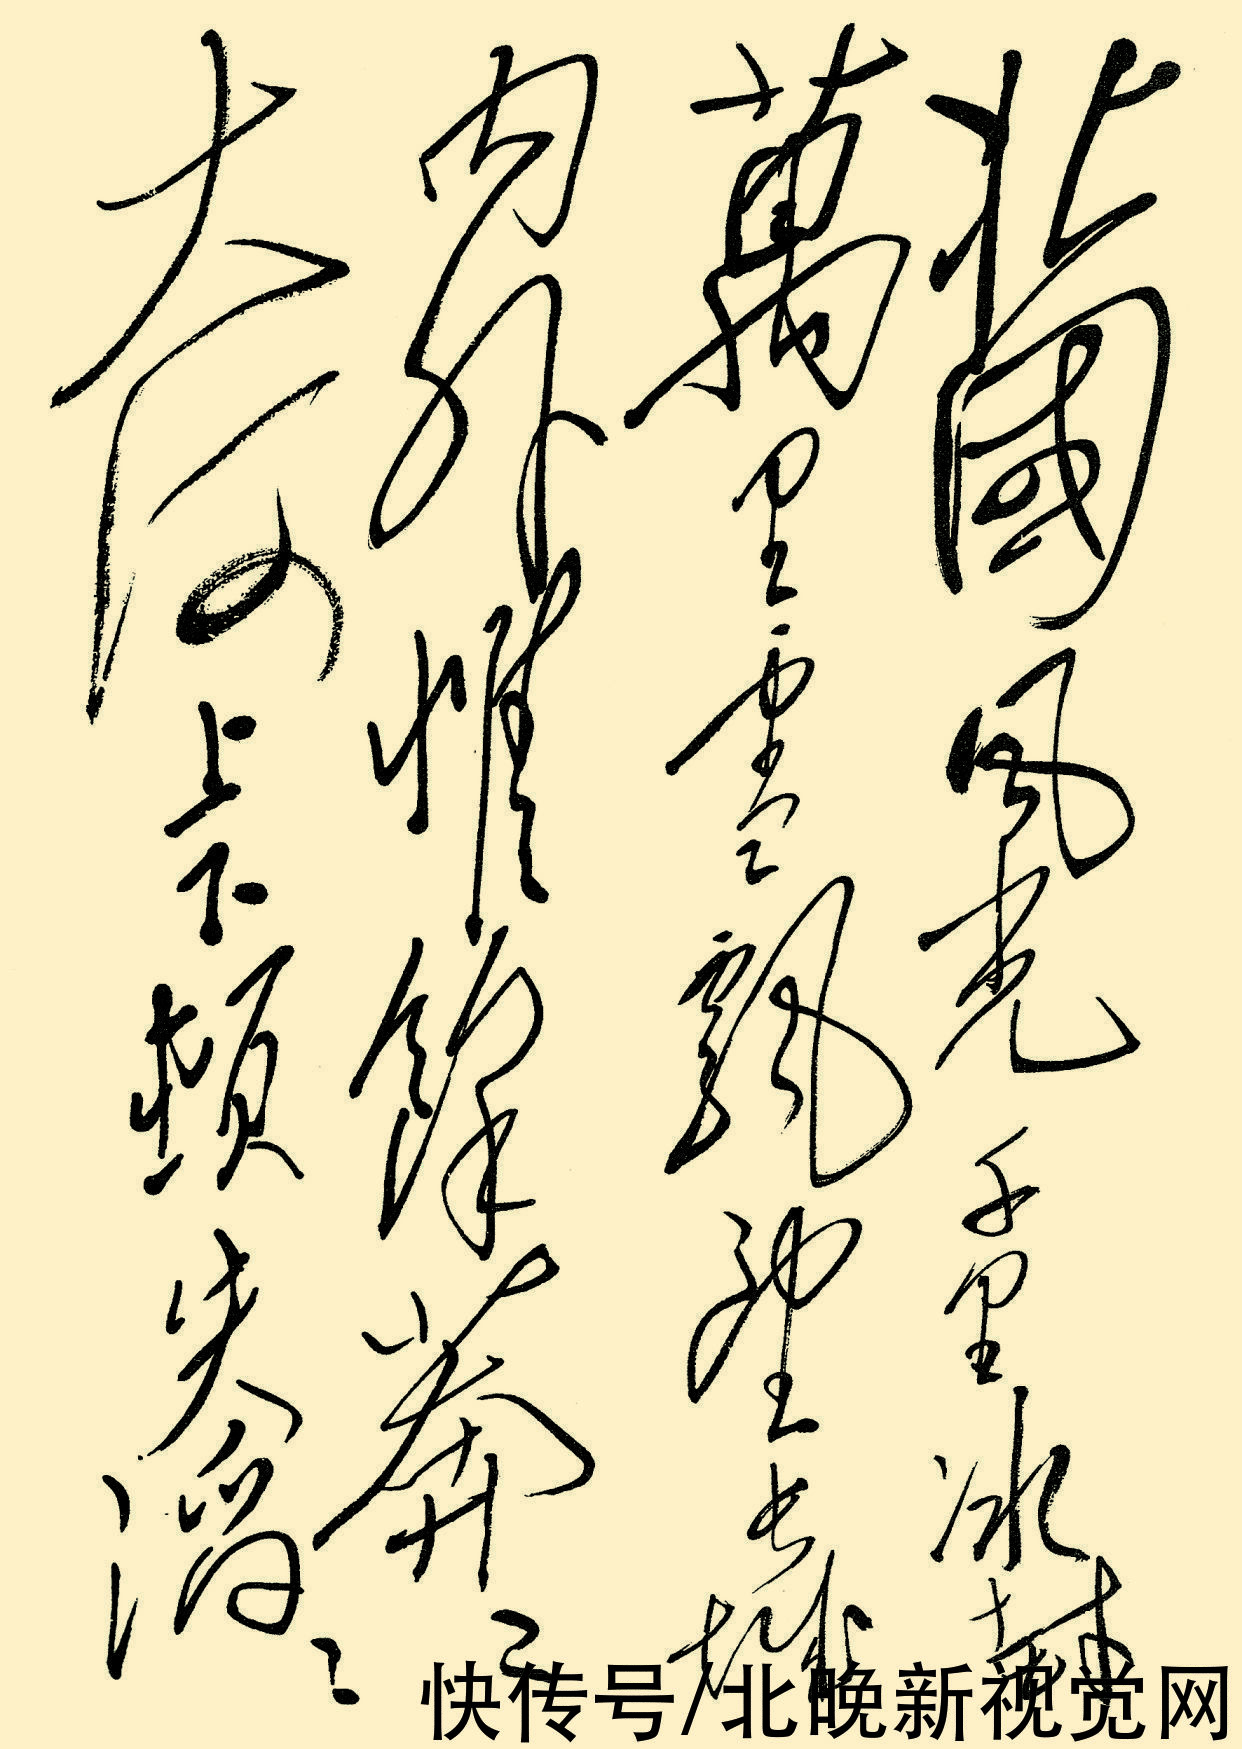 北國風光千里冰封
萬里雪飄望長城
內外惟餘莽々
大河上下頓失滔々
快传号/北晚新视觉网